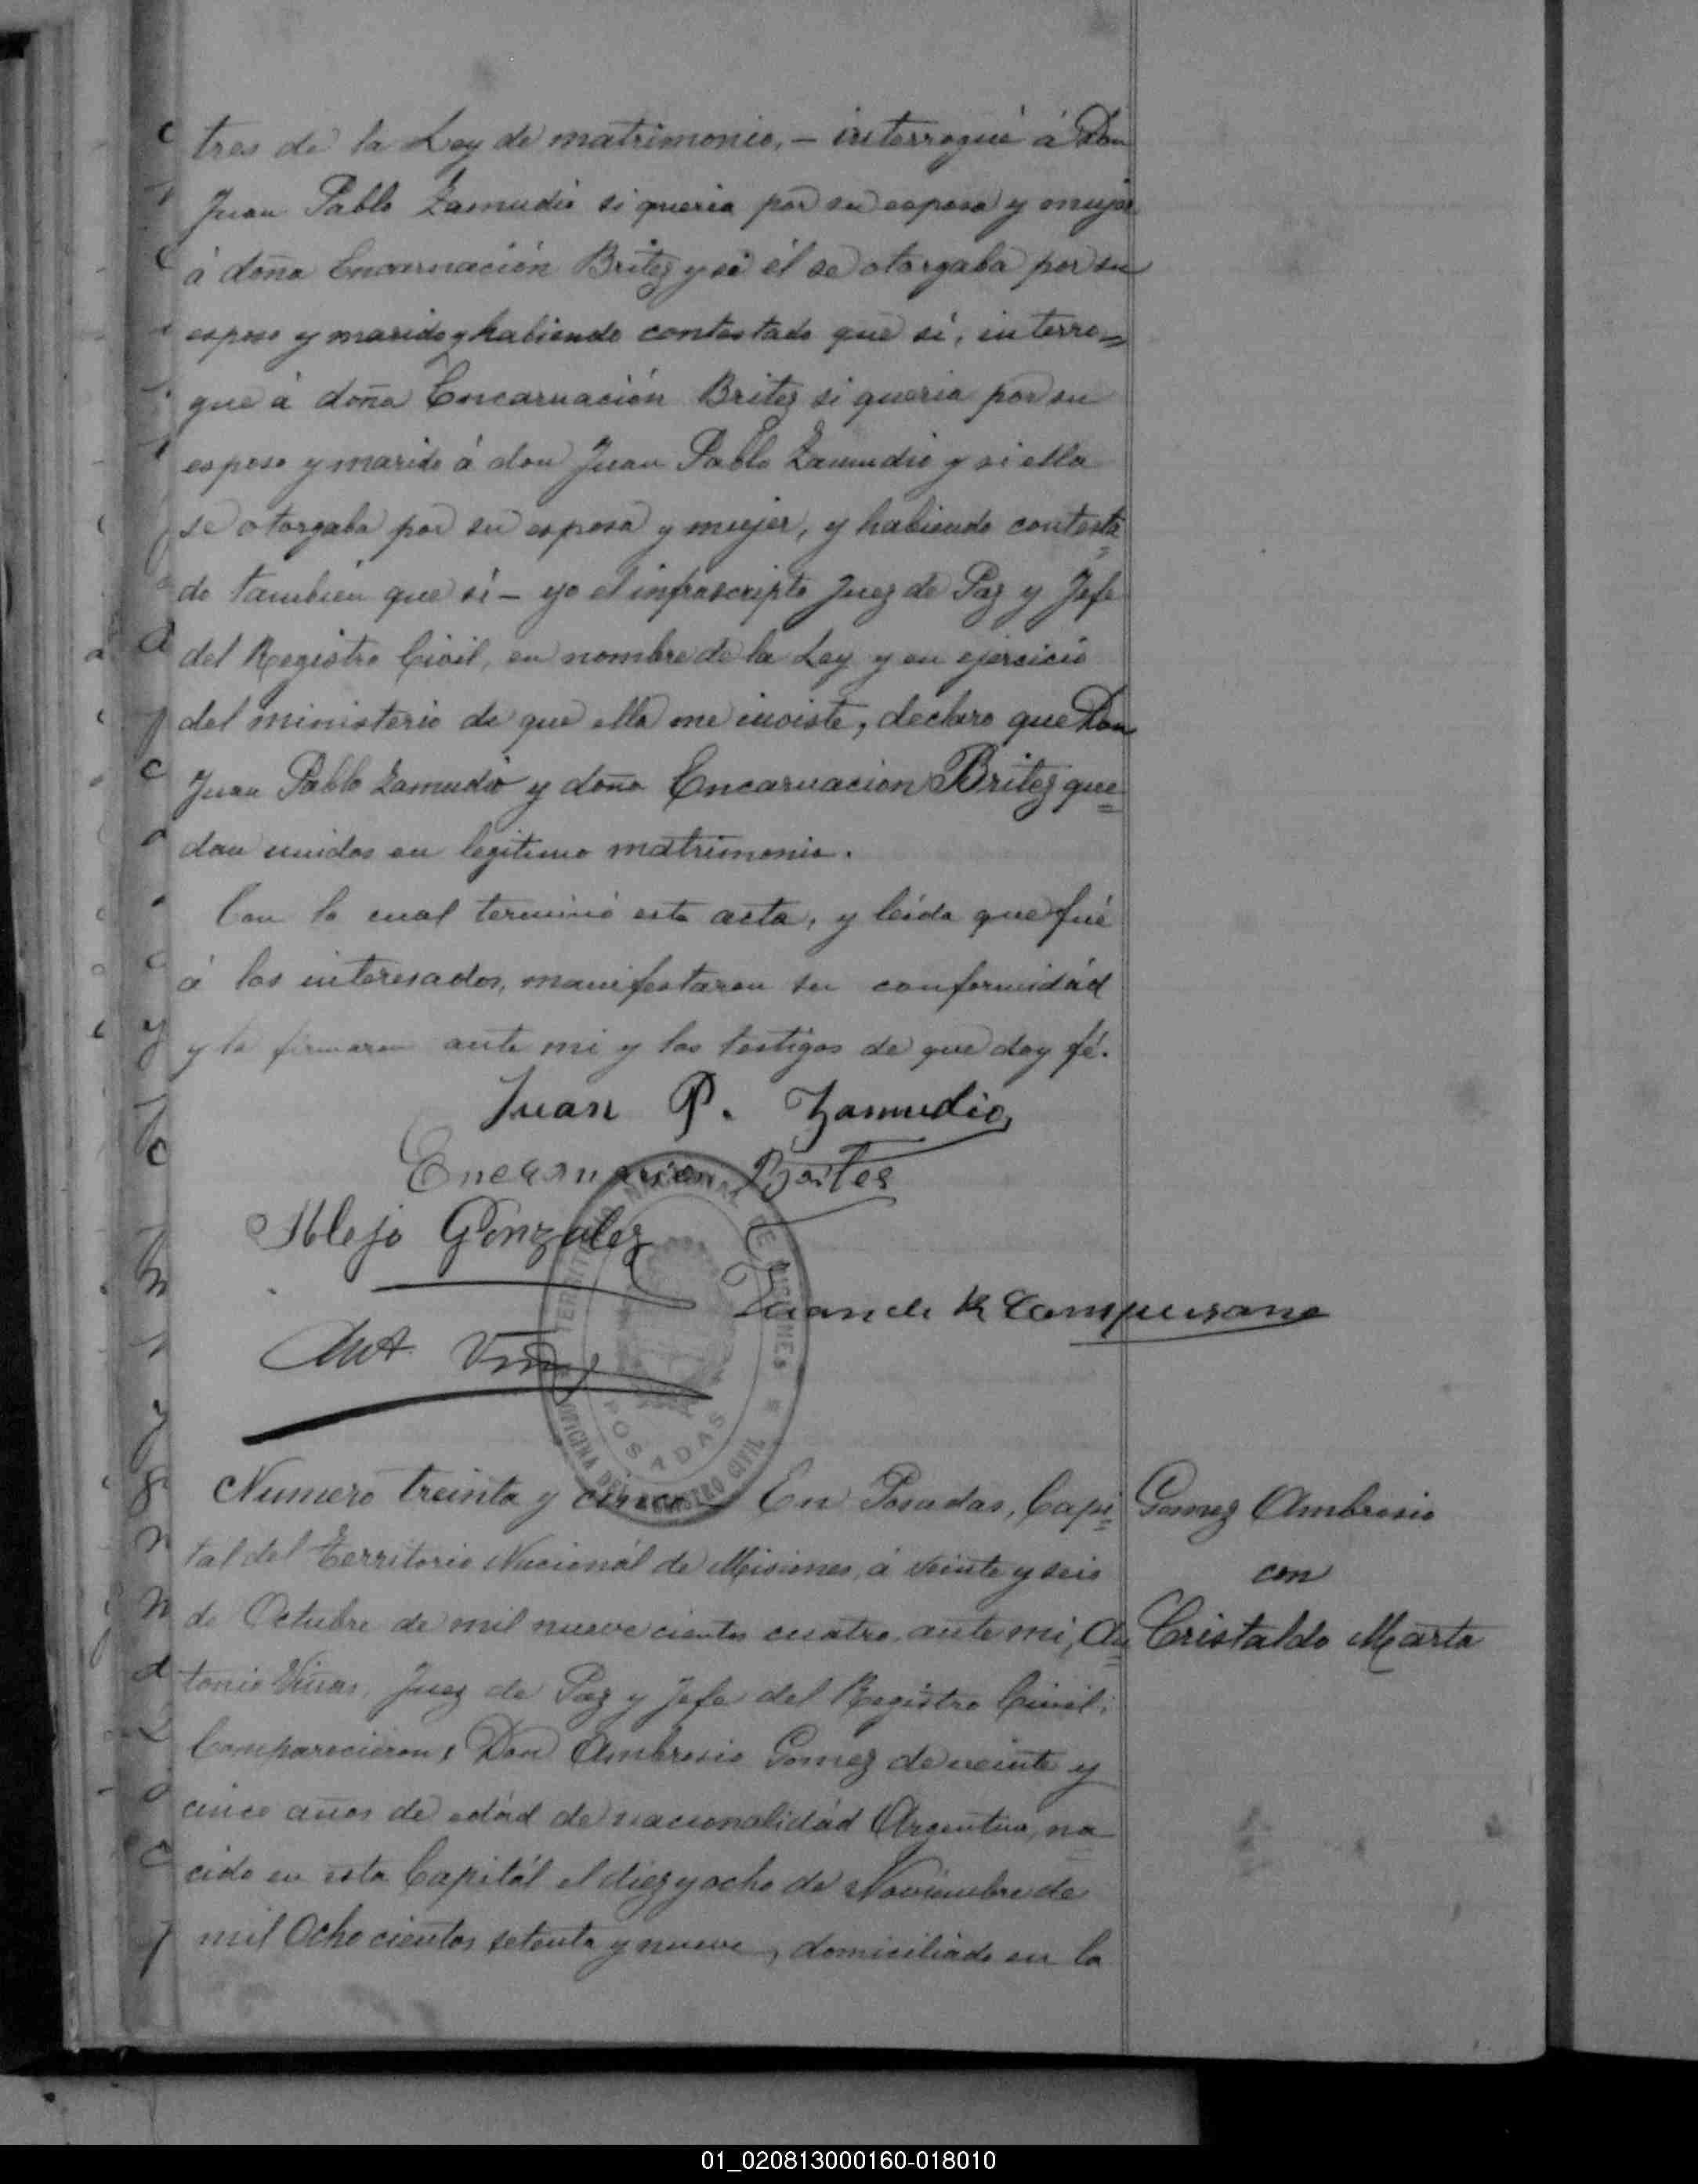 tres de la Ley de matrimonio, — interrogué á Don
Juan Pablo Zamudio si queria por su esposa y mujer
á doña Encarnación Britez y si él se otorgaba por su
esposo y marido y habiendo contestado que sí, interro=
gue á doña Encarnación Britez si queria por su
esposo y marido á don Juan Pablo Zamudio y si ella
se otorgaba por su esposa y mujer, y habiendo contesta=
do tambien que sí — yo el infrascripto Juez de Paz y Jefe
del Registro Civil, en nombre de la Ley y en ejercicio
del ministerio de que ella me inviste, declaro que Don
Juan Pablo Zamudio y doña Encarnacion Britez que=
dan unidos en legitimo matrimonio.
Con lo cual terminó esta acta, y leída que fué
á los interesados, manifestaron su conformidád
y la firmaron ante mi y los testigos de que doy fé.
Juan P. Zamudio
Encarnacion Brites
Alejo Gonzalez
Juan de Campusano
Ant Viñas
TERRITORIO NACIONAL DE MISIONES
POSADAS
OFICINA DEL REGISTRO CIVIL
Numero treinta y cinco — En Posadas, Capi=
Gomez Ambrosio
tal del Territorio Nacionál de Misiones, á veinte y seis
con
de Octubre de mil nuevecientos cuatro, ante mi, An=
Cristaldo Marta
tonio Viñas, Juez de Paz y Jefe del Registro Civil;
Comparecieron: Don Ambrosio Gomez de veinte y
cinco años de edád de nacionalidád Argentina, na=
cido en esta Capitál el diez y ocho de Noviembre de
mil Ochocientos setenta y nueve, domiciliado en la
01_020813000160-018010